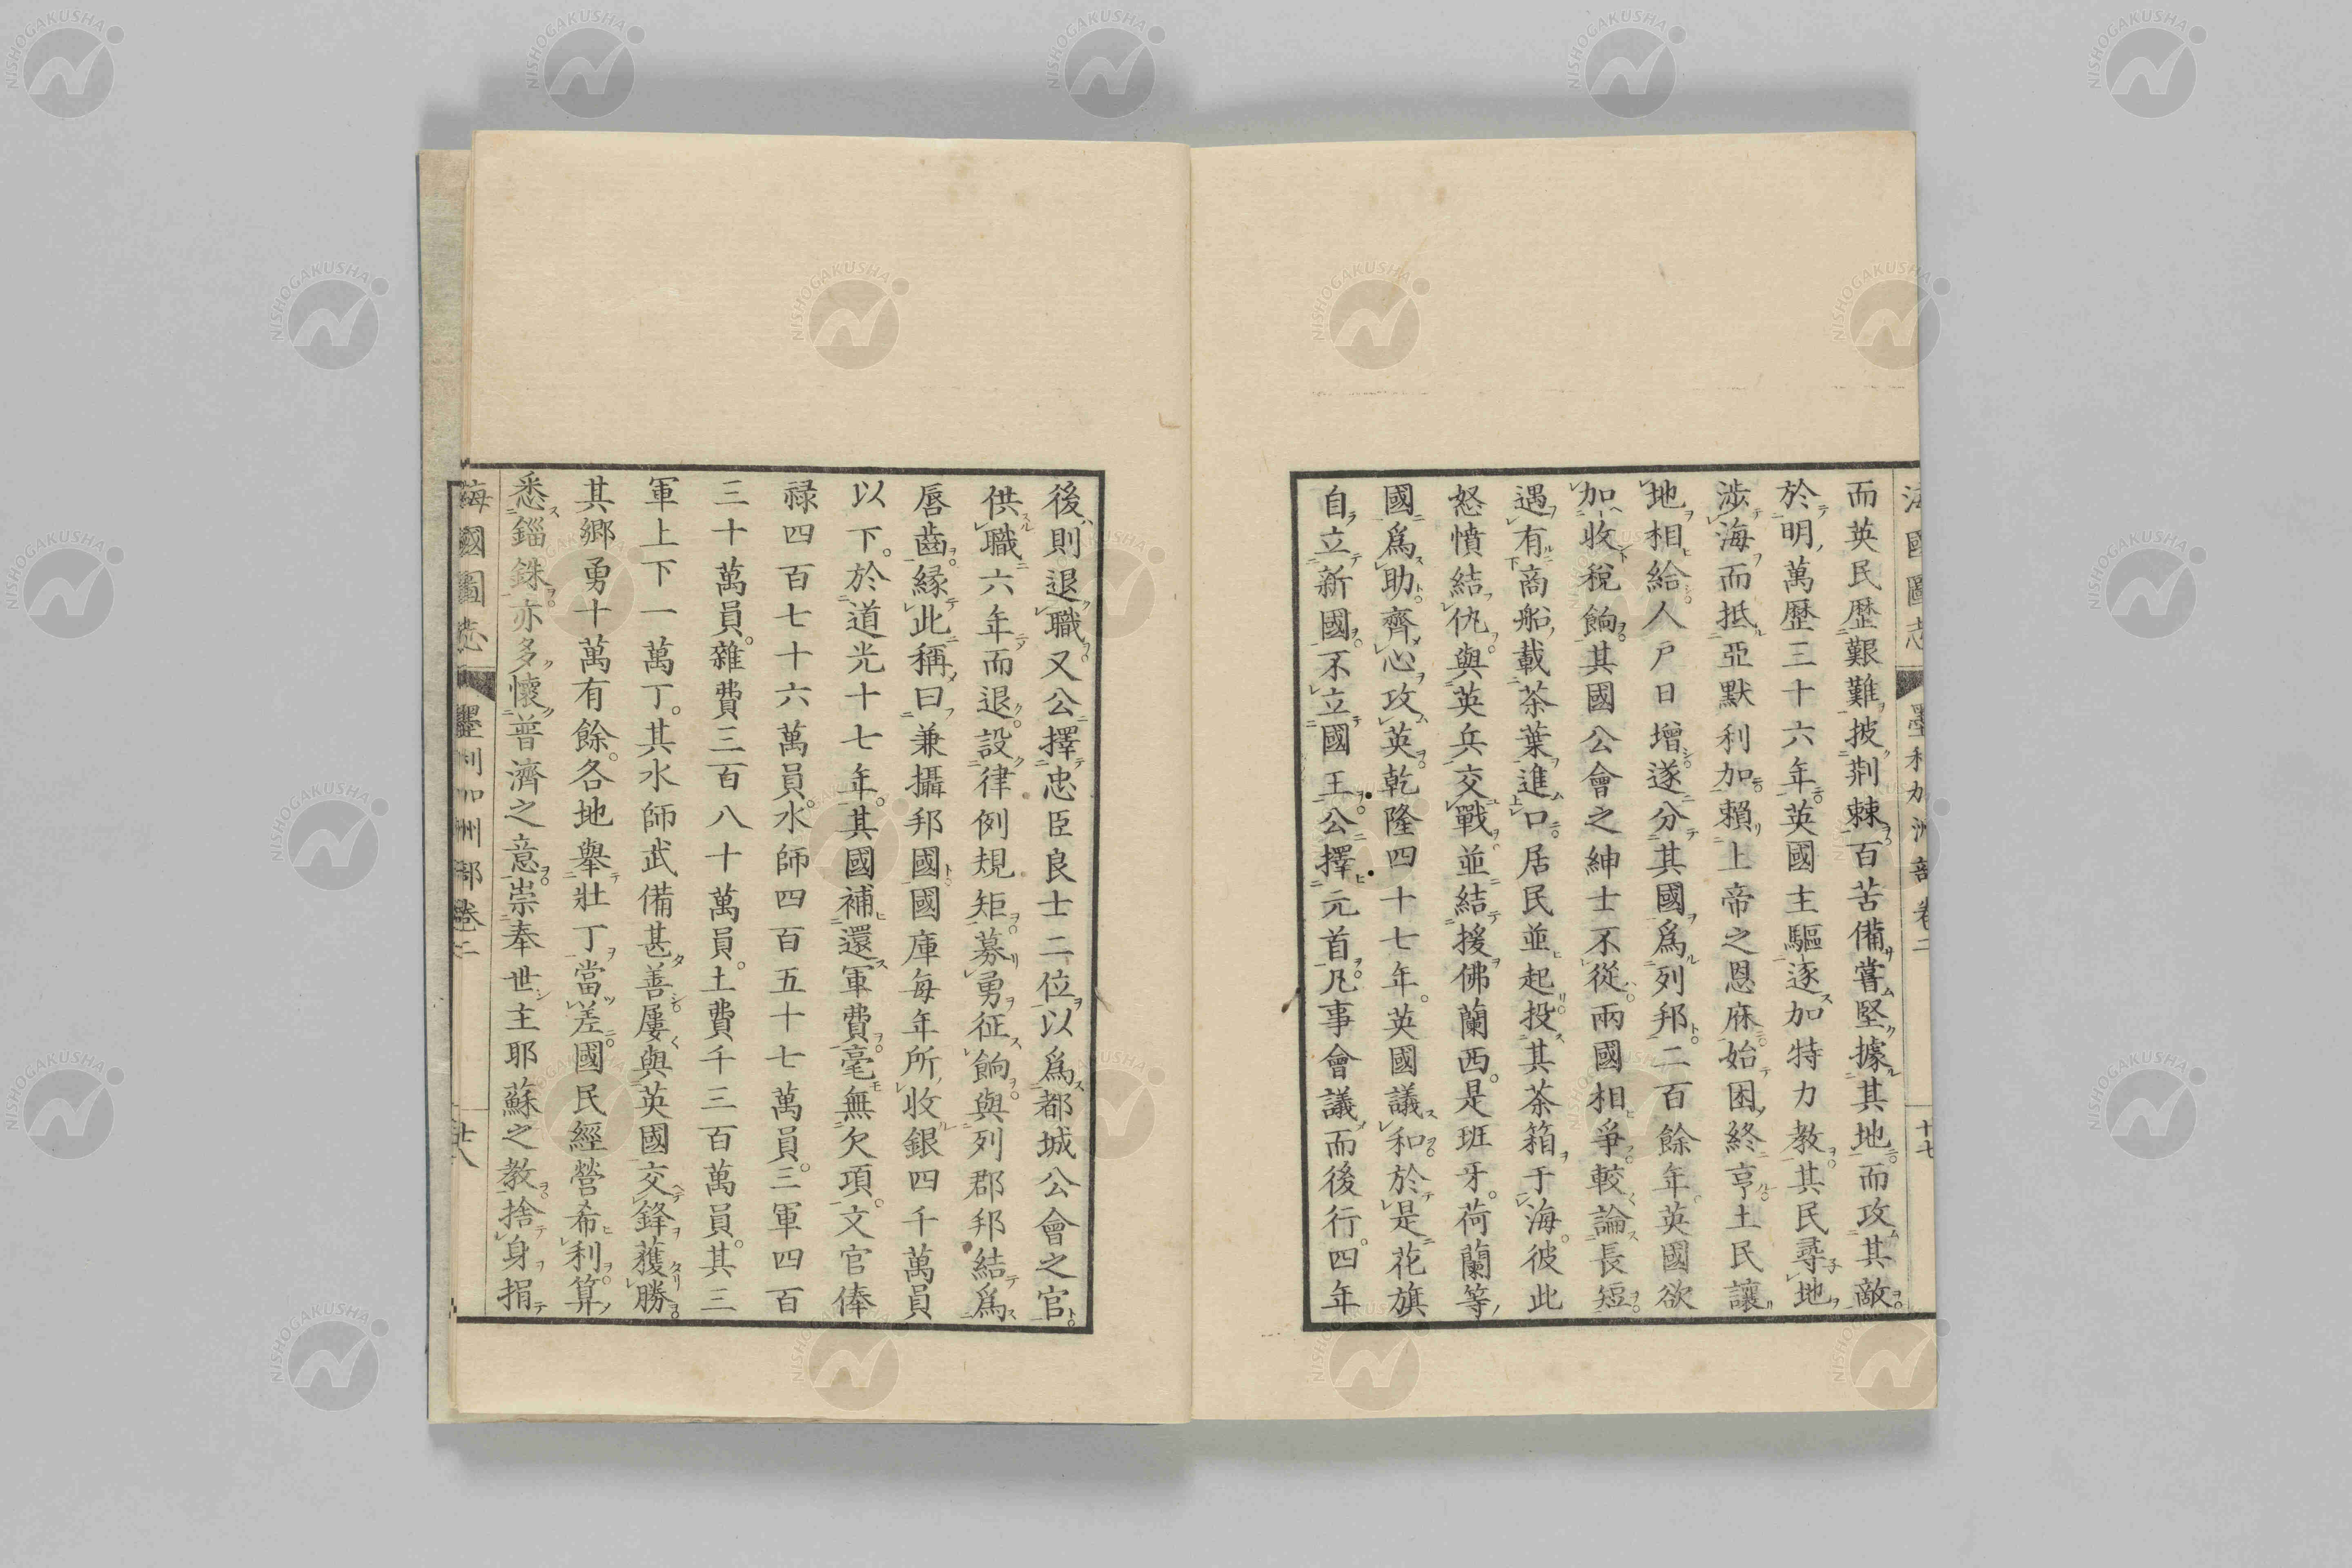 海國圖志 墨利加洲部卷二 十七
而英民歷艱難披荆棘百苦備嘗堅據其地而攻其敵
於明萬歷三十六年英國主驅逐加特力教其民尋地
涉海而抵亞默利加賴上帝之恩庥始困終亨土民讓
地相給人戸日增遂分其國爲列邦二百餘年英國欲
加收稅餉其國公會之紳士不從兩國相爭較論長短
遇有商船載茶葉進口居民並起投其茶箱于海彼此
怒憤結仇與英兵交戰並結援佛蘭西是班牙荷蘭等
國爲助齊心攻英乾隆四十七年英國議和於是花旗
自立新國不立國王公擇元首凡事會議而後行四年
後則退職又公擇忠臣良士二位以爲都城公會之官
供職六年而退設律例規矩募勇征餉與列郡邦結爲
唇齒緣此稱曰兼攝邦國國庫每年所收銀四千萬員
以下於道光十七年其國補還軍費毫無欠項文官俸
祿四百七十六萬員水師四百五十七萬員三軍四百
三十萬員雜費三百八十萬員土費千三百萬員其三
軍上下一萬丁其水師武備甚善屢與英國交鋒獲勝
其鄉勇十萬有餘各地舉壯丁當差國民經營希利算
悉錙銖亦多懷普濟之意崇奉世主耶蘇之教捨身捐
海國圖志 墨利加州部卷二 十八
NISHOGAKUSHA